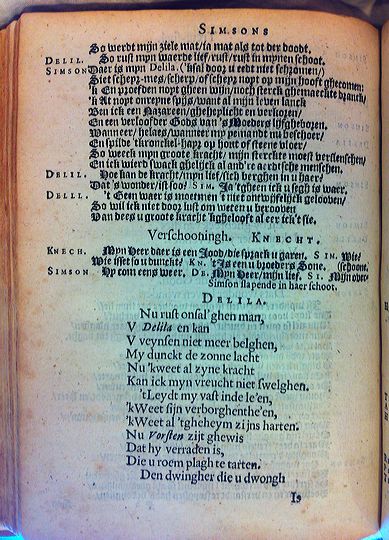 SIMSONS
So werdt mijn ziele mat/ ja mat als tot der doodt.
DELIL. So rust mijn waerde lief/ rust/ rust in mynen schoot.
SIMSON Daer is myn Delila. ('k sal door u eedt niet schromen/
Siet scheyr-mes/ scherp/ of scheyr noyt op mijn hooft ghecomen:
'k En proefden noyt gheen wijn/ noch sterck ghemaeckte dranck/
'k At noyt onreyne spijs/ want al mijn leven lanck
Ben ick een Nazareen/ gheheylicht en verkoren/
En een verlosser Gods van 's Moeders lijf gheboren.
Wanneer/ helaes/ wanneer my yemandt nu beschoer/
En spilde 't kronckel-hayr op hout of steene vloer/
So weeck mijn groote kracht/ mijn stercte moest verslenschen/
En ick wierd swack ghelijck al and're aerdsche menschen.
DELIL. Hoe kan de kracht/ mijn lief/ sich berghen in u haer?
Dat 's wonder/ ist soo? SIM. Ja 'tgheen ick u segh is waer.
DELIL. 't Geen waer is moet men 't niet onwijslijck gelooven/
So wil ick niet door lust om weten u berooven
Van dees u groote kracht 'k ghelooft al eer ick 't sie.
Verschooningh. KNECHT.
KNECH. Myn Heer daer is een Jood/ die sprack u garen. SIM. Wie?
Wie isset so u dunckt? KN. 't Is een u broeders Sone. (schoone.
SIMSON Hy com eens weer. DE. Myn Heer/ mijn lief. SI. Mijn over-
Simson slapende in haer schoot.
DELILA.
Nu rust onsal'ghen man,
V Delila en kan
V veynsen niet meer belghen,
My dunckt de zonne lacht
Nu 'kweet al zyne kracht
Kan ick myn vreucht niet swelghen.
'tLeydt my vast inde le'en,
'kWeet sijn verborghenthe'en,
'kWeet al 'tgheheym zijns harten.
Nu Vorsten zijt ghewis
Dat hy verraden is,
Die u roem plagh te tarten.
Den dwingher die u dwongh
Is